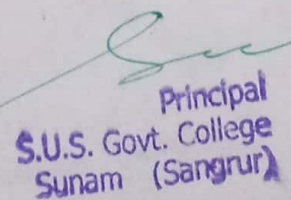 Principal
S.U.S. Govt. College
Sunam (Sangrur)